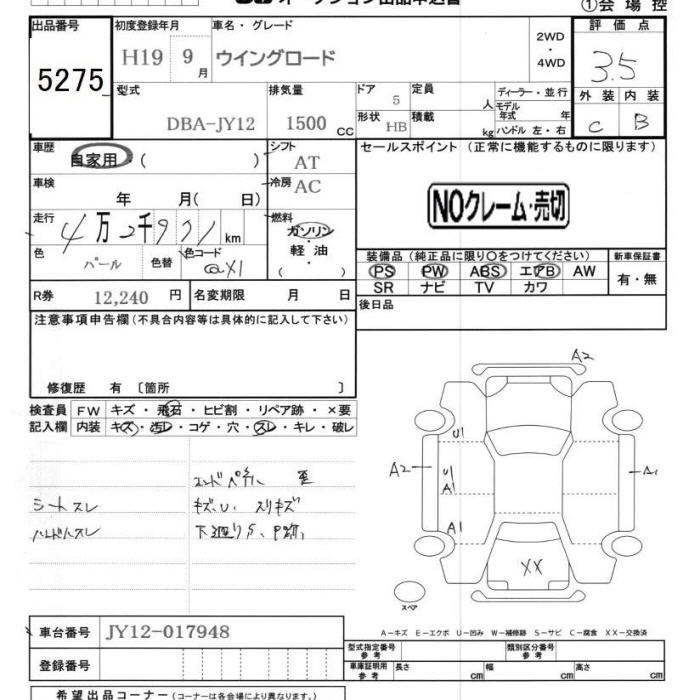 オークション出品申込書
①会場控
出品番号 初度登録年月 車名・グレード 評価点
5275 H19 9月 ウイングロード 2WD・4WD 3.5
型式 排気量 ドア 定員 ディーラー・並行 外装 内装
DBA-JY12 1500 CC 5 人 モデル年式 年 C B
形状 HB 積載 kg ハンドル 左・右
車歴 自家用・( ) シフト AT セールスポイント (正常に機能するものに限ります)
車検 年 月( 日) 冷房 AC
NOクレーム・売切
走行 4万2千971km 燃料 ガソリン・軽油( )
色 パール 色替 色コード @X1
装備品(純正品に限り○をつけてください) 新車保証書
PS PW ABS エアB AW 有・無
SR ナビ TV カワ
R券 12,240 円 名変期限 月 日 後日品
注意事項申告欄(不具合内容等は具体的に記入して下さい)
修復歴 有 〔箇所 〕
検査員 FW キズ・飛石・ヒビ割・リペア跡・×要
記入欄 内装 キズ・汚レ・コゲ・穴・スレ・キレ・破レ
シートスレ キズ、U、スリキズ
A2
U1
A2 U1 A1
A1
A1
XX
スペア
A-キズ E-エクボ U-凹み W-補修跡 S-サビ C-腐食 XX-交換済
車台番号 JY12-017948
型式指定番号参考 類別区分番号参考
登録番号 車庫証明用参考 長さ cm 幅 cm 高さ cm
希望出品コーナー(コーナーは各会場により異なります。)